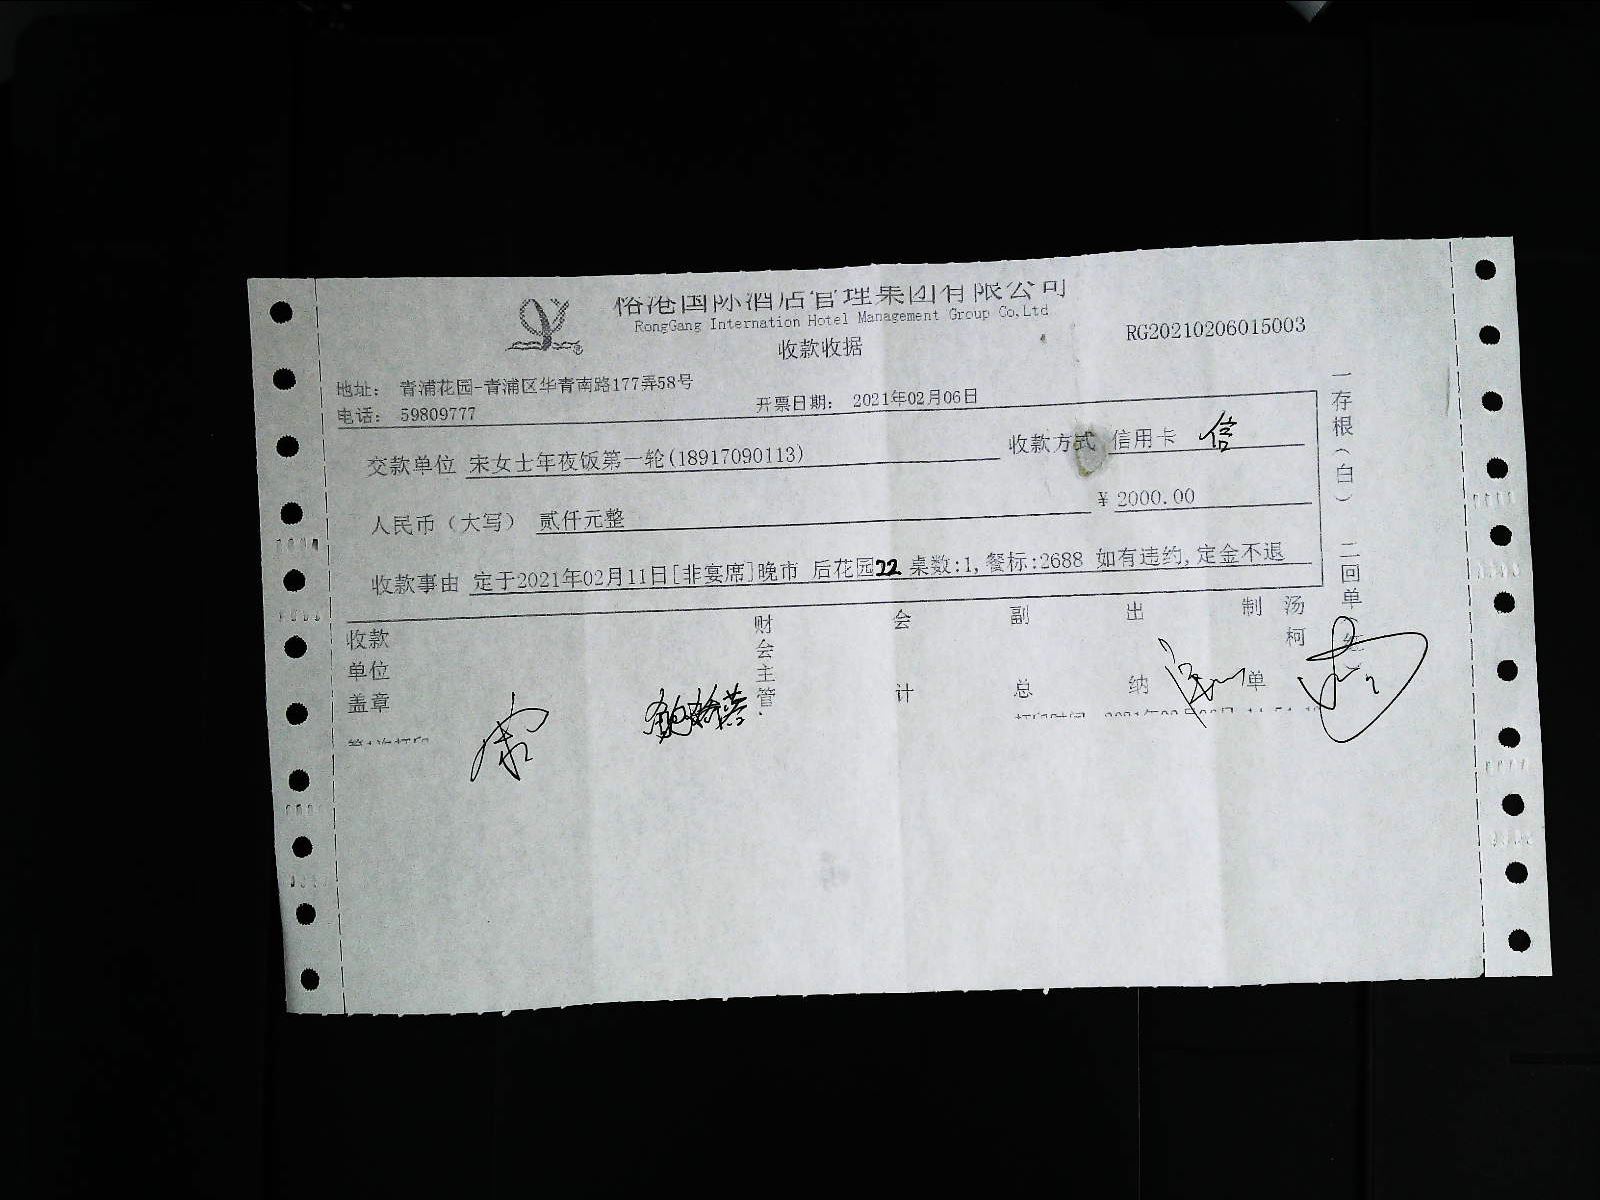 港国际酒店管理集团有限公司
RongGang Internation Hotel Management Group Co,Ltd
收款收据
RG20210206015003
地址： 青浦花园-青浦区华青南路177弄58号
电话： 59809777
开票日期： 2021年02月06日
交款单位 宋女士年夜饭第一轮(18917090113)
收款方式 信用卡 信
人民币（大写） 贰仟元整
￥2000.00
收款事由 定于2021年02月11日[非宴席]晚市 后花园22 桌数:1,餐标:2688 如有违约,定金不退
收款单位盖章
财会主管
会计
副总
出纳
制单
汤柯
一存根（白）
二回单